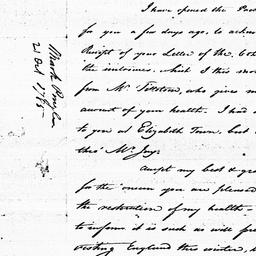 I have opened the Pack
for you a few days ago, to acknow
Receipt of your Letter of the 6th
the inclosures. which I this mor
from Mr who gives me
account of your health. I had
to you at Elizabeth Town, but
thro' Mr Jay.
accept my best & gra
for the concern you are pleased
the restoration of my health
to inform it is such as will fre
visiting England this winter,
21 Oct 1785